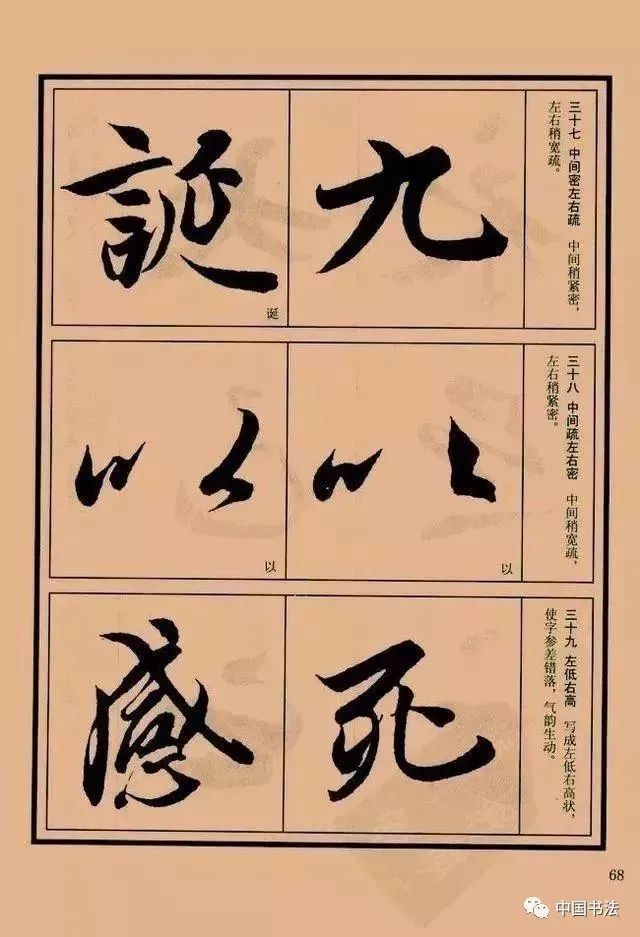 三十七 中间密左右疏 中间稍紧密，
左右稍宽疏。
九
誕
诞
三十八 中间疏左右密 中间稍宽疏，
左右稍紧密。
以
以
以
以
三十九 左低右高 写成左低右高状，
使字参差错落，气韵生动。
死
感
68
中国书法